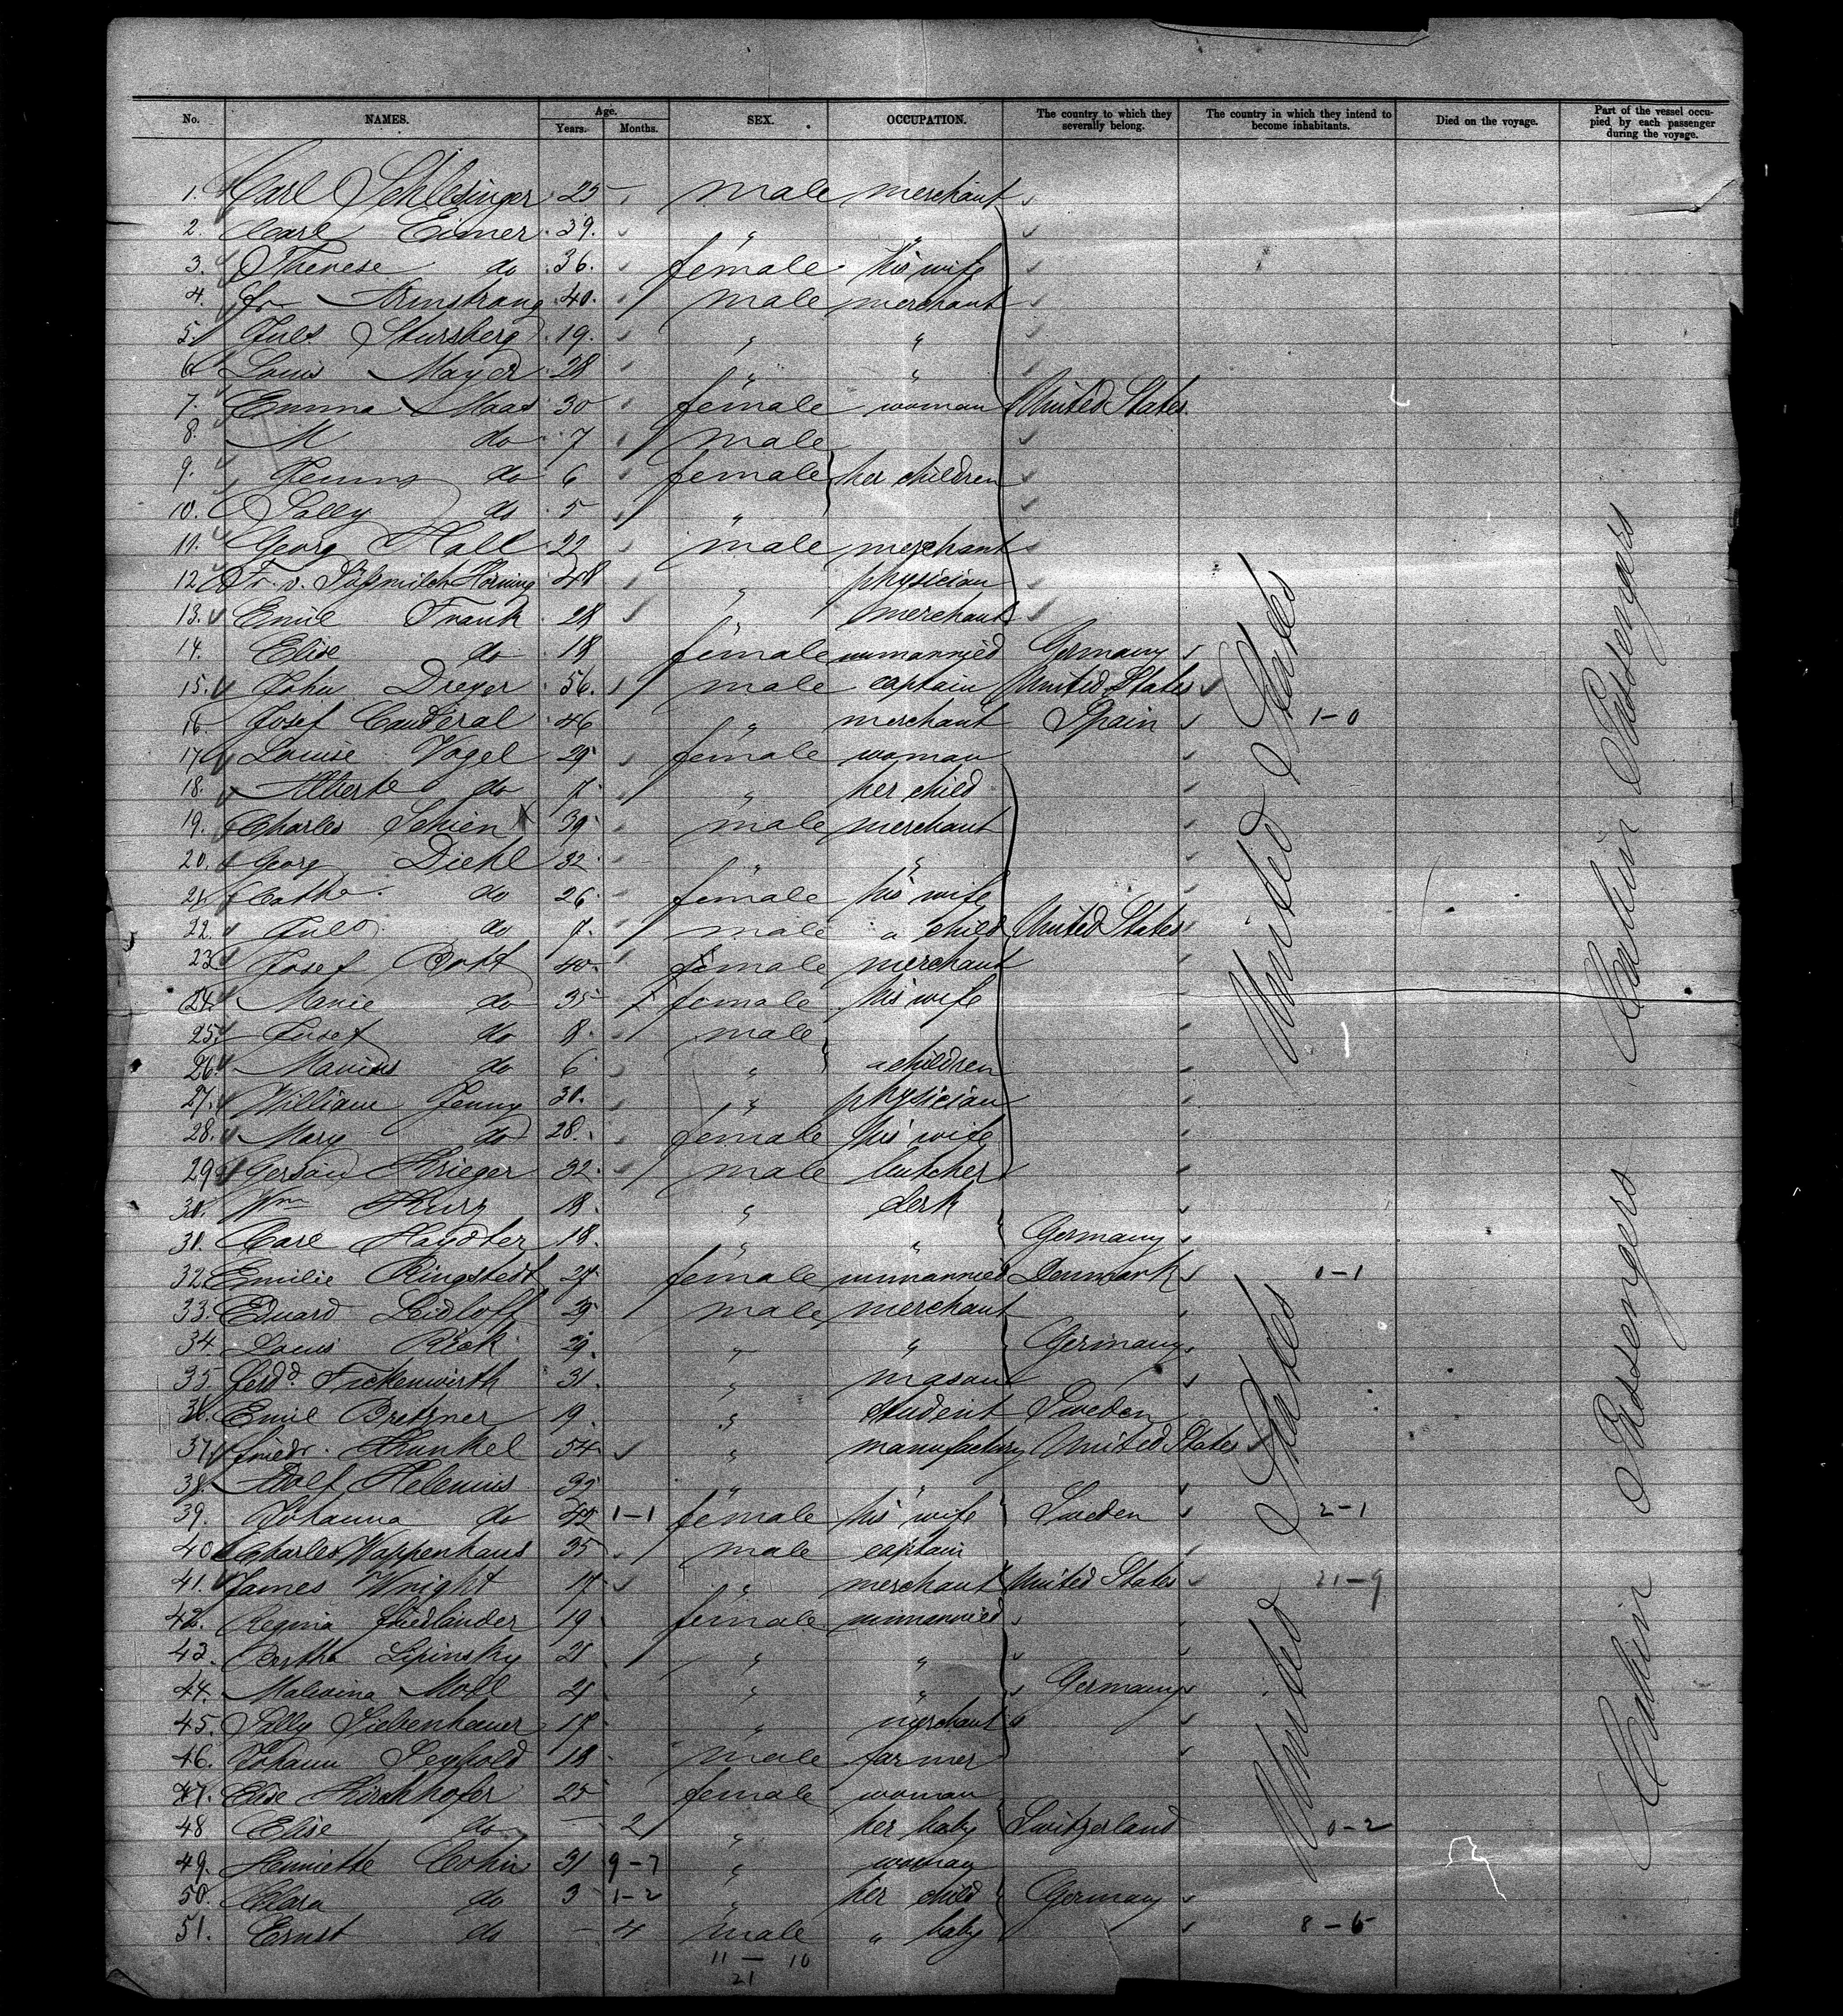 No. NAMES. Age. Years. Months. SEX. OCCUPATION. The country to which they severally belong. The country in which they intend to become inhabitants. Died on the voyage. Part of the vessel occupied by each passenger during the voyage.
1. Carl Schlesinger 25 - male merchant
2. Carl Eimer 39. " "
3. Therese do 36. female his wife
4. Armstrong 40. male merchant
5. Jul's Stursberg 19. " "
6. Louis Mayer 28 " "
7. Emma Maas 30 female woman United States
8. M do 7 male
9. do 6 female her children
10. Sally do 5 "
11. Georg Hall 22 male merchant
12. Fr. v. Süßmilch Hörning 48 " physician
13. Emil Frank 28 " merchant
14. Elise do 18 female unmarried Germany
15. John Dreyer 56. male captain United States
16. Josef 46 " merchant Spain 1-0
17. Louise Vogel 29 female woman
18. Alberte do 7 " her child
19. Charles Schien 39 male merchant
20. Georg Diehl 32 " "
21. Cathe. do 26 female his wife
22. Juls. do 7. male a child United States
23. Josef Bott 40 male merchant
24. Marie do 35 female his wife
25. Josef do 8. male
26. Marius do 6 " children
27. William Jenny 30. " physician
28. Mary do 28. female his wife
29. Gerson Krieger 32 male butcher
30. Wm Kurz 18. " clerk
31. Carl Haydter 18. " " Germany
32. Emilie Ringstedt 27 female unmarried Denmark 0-1
33. Eduard Leidloff 29 male merchant
34 Louis Rick 29. " " Germany
35 Ferdd. Fickenwirth 31. " mason
36. Emil Bretzner 19. " student Sweden
37. Friedr. Kunkel 54 " manufactury United States
38. Adolf Helenius 39 " "
39. Johanna do 42 1-1 female his wife Sweden 2-1
40 Charles Wappenhaus 35 male captain
41. James Wright 17 " merchant United States 21-9
42. Regina Friedlander 19 female unmarried
43. Bertha Lipinsky 21 " "
44. Malwina 21 " " Germany
45. Sally Liebenhauer 17 " merchant
46. Johann Seybold 18 male farmer
47. Elise Kirchhofer 25 female woman
48 Elise do - 2 " her baby Switzerland 0-2
49. Henriette Cohn 31 9-7 " woman
50. Clara do 3 1-2 " her child Germany
51. Ernst do - 4 male " baby 8-6
11 - 10
21
United States
United States
Cabin Passengers
Cabin Passengers